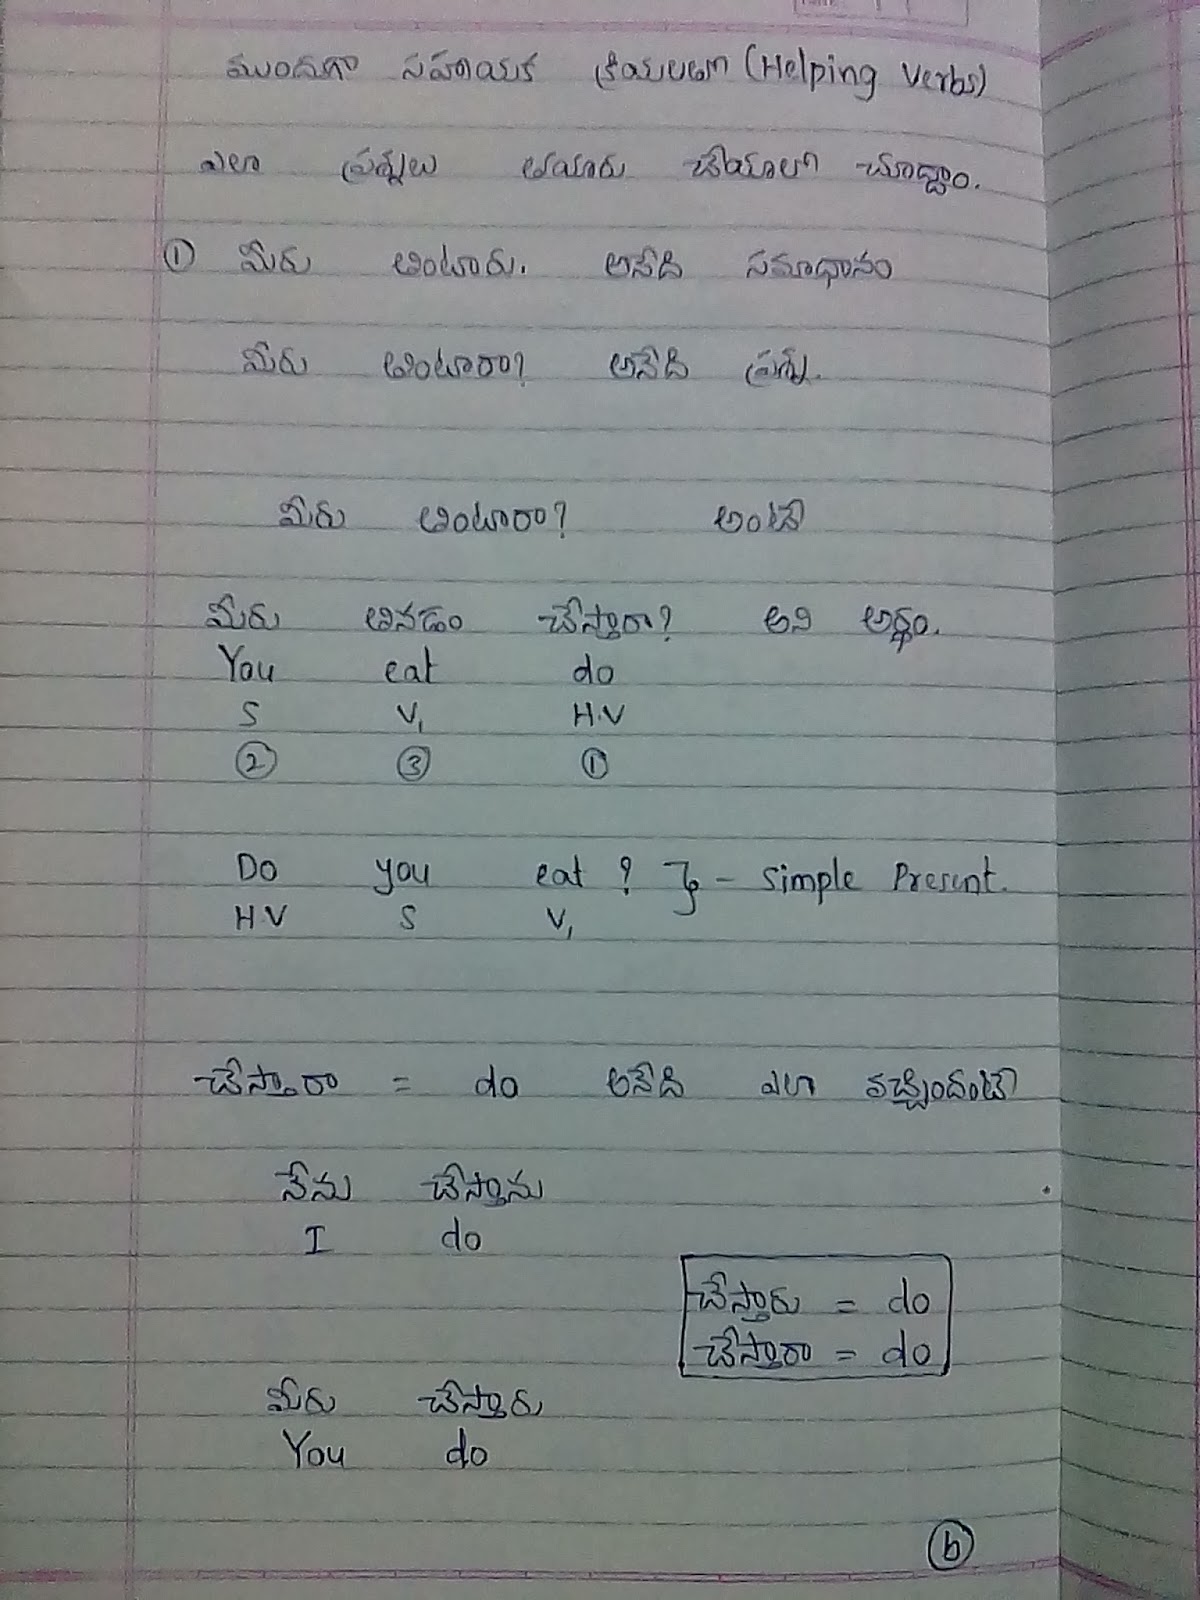 ముందుగా సహాయక క్రియలతో (Helping Verbs)
ఎలా ప్రశ్నలు తయారు చేయాలో చూద్దాం.
① మీరు తింటారు. అనేది సమాధానం
మీరు తింటారా? అనేది ప్రశ్న.
మీరు తింటారా? అంటే
మీరు తినడం చేస్తారా? అని అర్థం.
You eat do
S V₁ H.V
② ③ ①
Do you eat ? } - Simple Present.
H.V S V₁
చేస్తారా = do అనేది ఎలా వచ్చిందంటే
నేను చేస్తాను
I do
చేస్తారు = do
చేస్తారా = do
మీరు చేస్తారు
You do
ⓑ